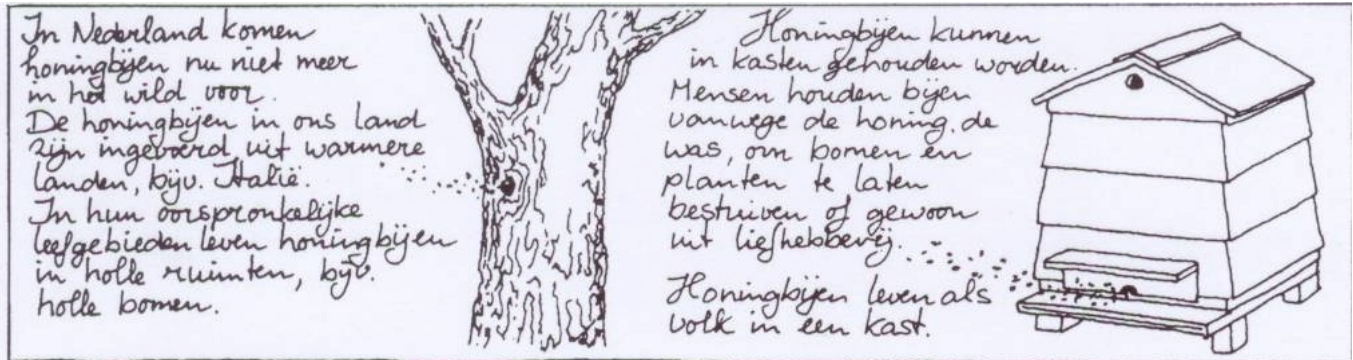 In Nederland komen
honingbijen nu niet meer
in het wild voor.
De honingbijen in ons land
zijn ingevoerd uit warmere
landen, bijv. Italië.
In hun oorspronkelijke
leefgebieden leven honingbijen
in holle ruimten, bijv.
holle bomen.
Honingbijen kunnen
in kasten gehouden worden.
Mensen houden bijen
vanwege de honing, de
was, om bomen en
planten te laten
bestuiven of gewoon
uit liefhebberij.
Honingbijen leven als
volk in een kast.